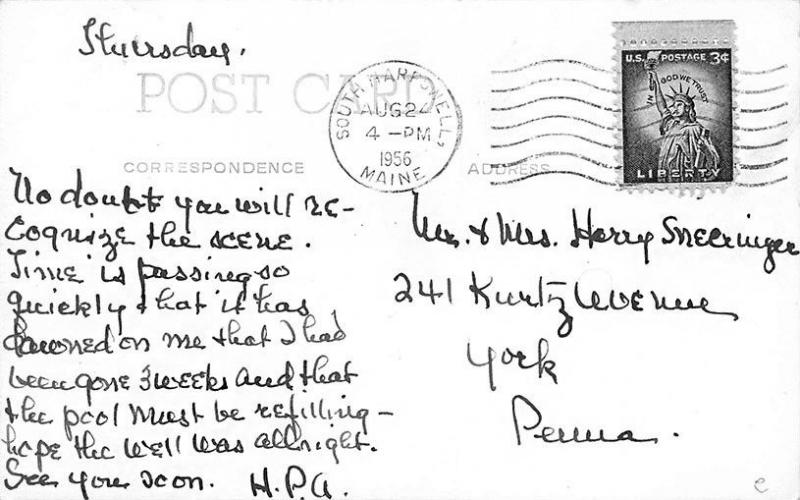 Thursday.
POST CARD
SOUTH HARPSWELL,
AUG 24
4 - PM
1956
MAINE
U.S. POSTAGE 3¢
IN GOD WE TRUST
LIBERTY
CORRESPONDENCE
ADDRESS
No doubt you will re-
cognize the scene.
Time is passing so
quickly that it has
dawned on me that I had
been gone 3 weeks and that
the pool must be refilling -
hope the well was allright.
See you soon. H.P.A.
Mr. & Mrs. Harry Sneeringer
241 Kurtz Avenue
York
Penna.
e